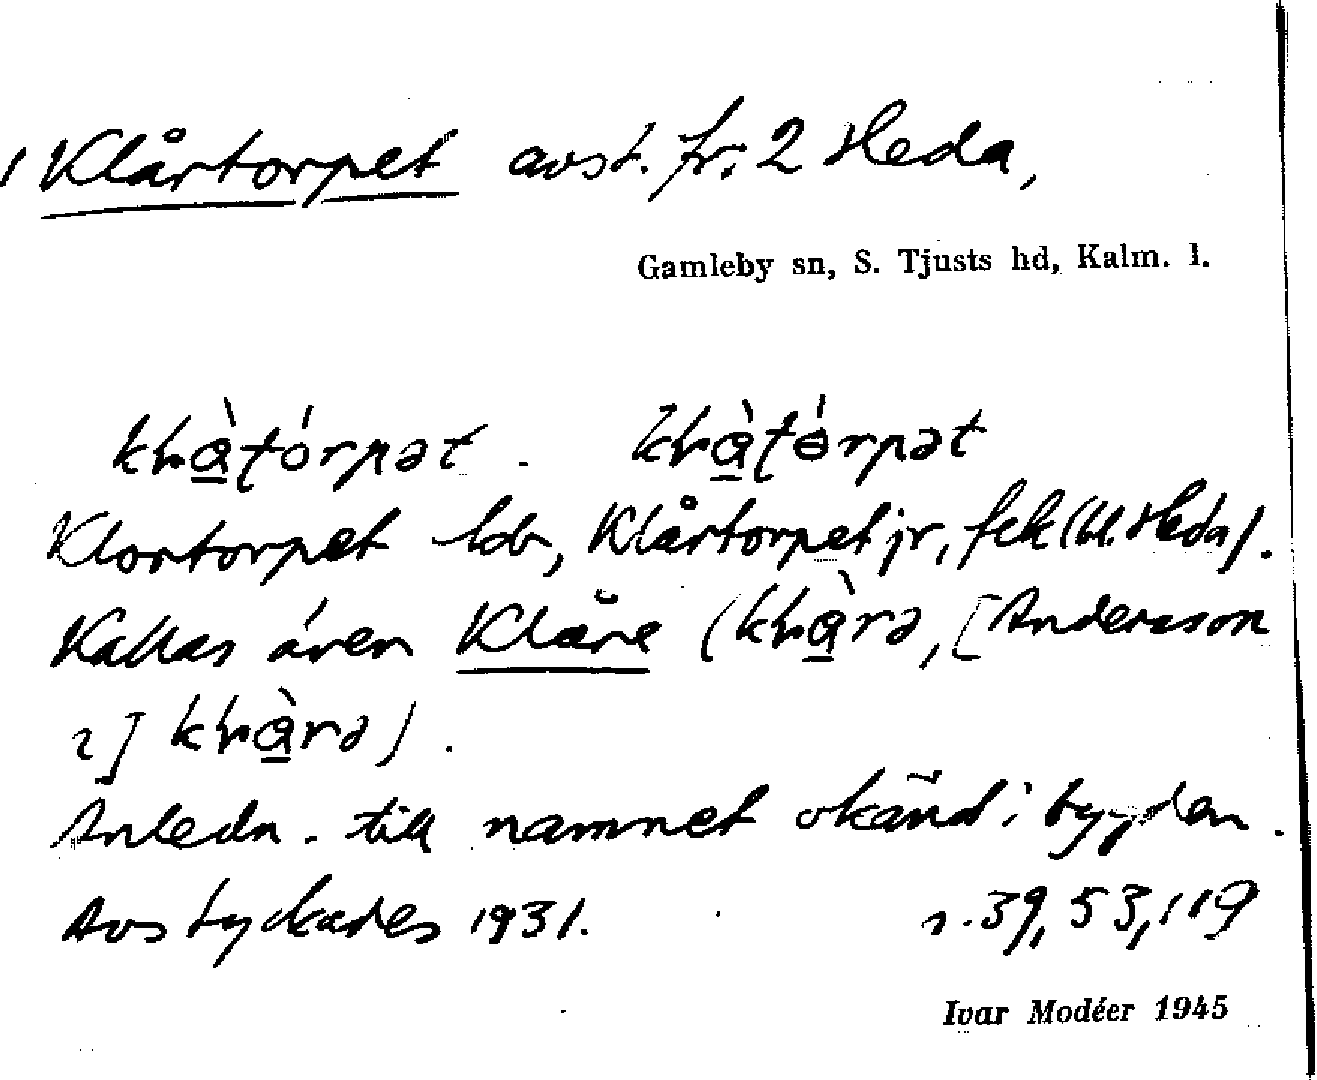 Klårtorpet avst. fr. 2 Heda,
Gamleby sn, S. Tjusts hd, Kalm. l.
Klortorpet Klårtorpet jr, fek (bl. Heda).
Kallas även Klåre ( [Andersson
Anledn. till namnet okänd i bygden.
Avstyckades 1931. s. 39, 53, 119
Ivar Modéer 1945